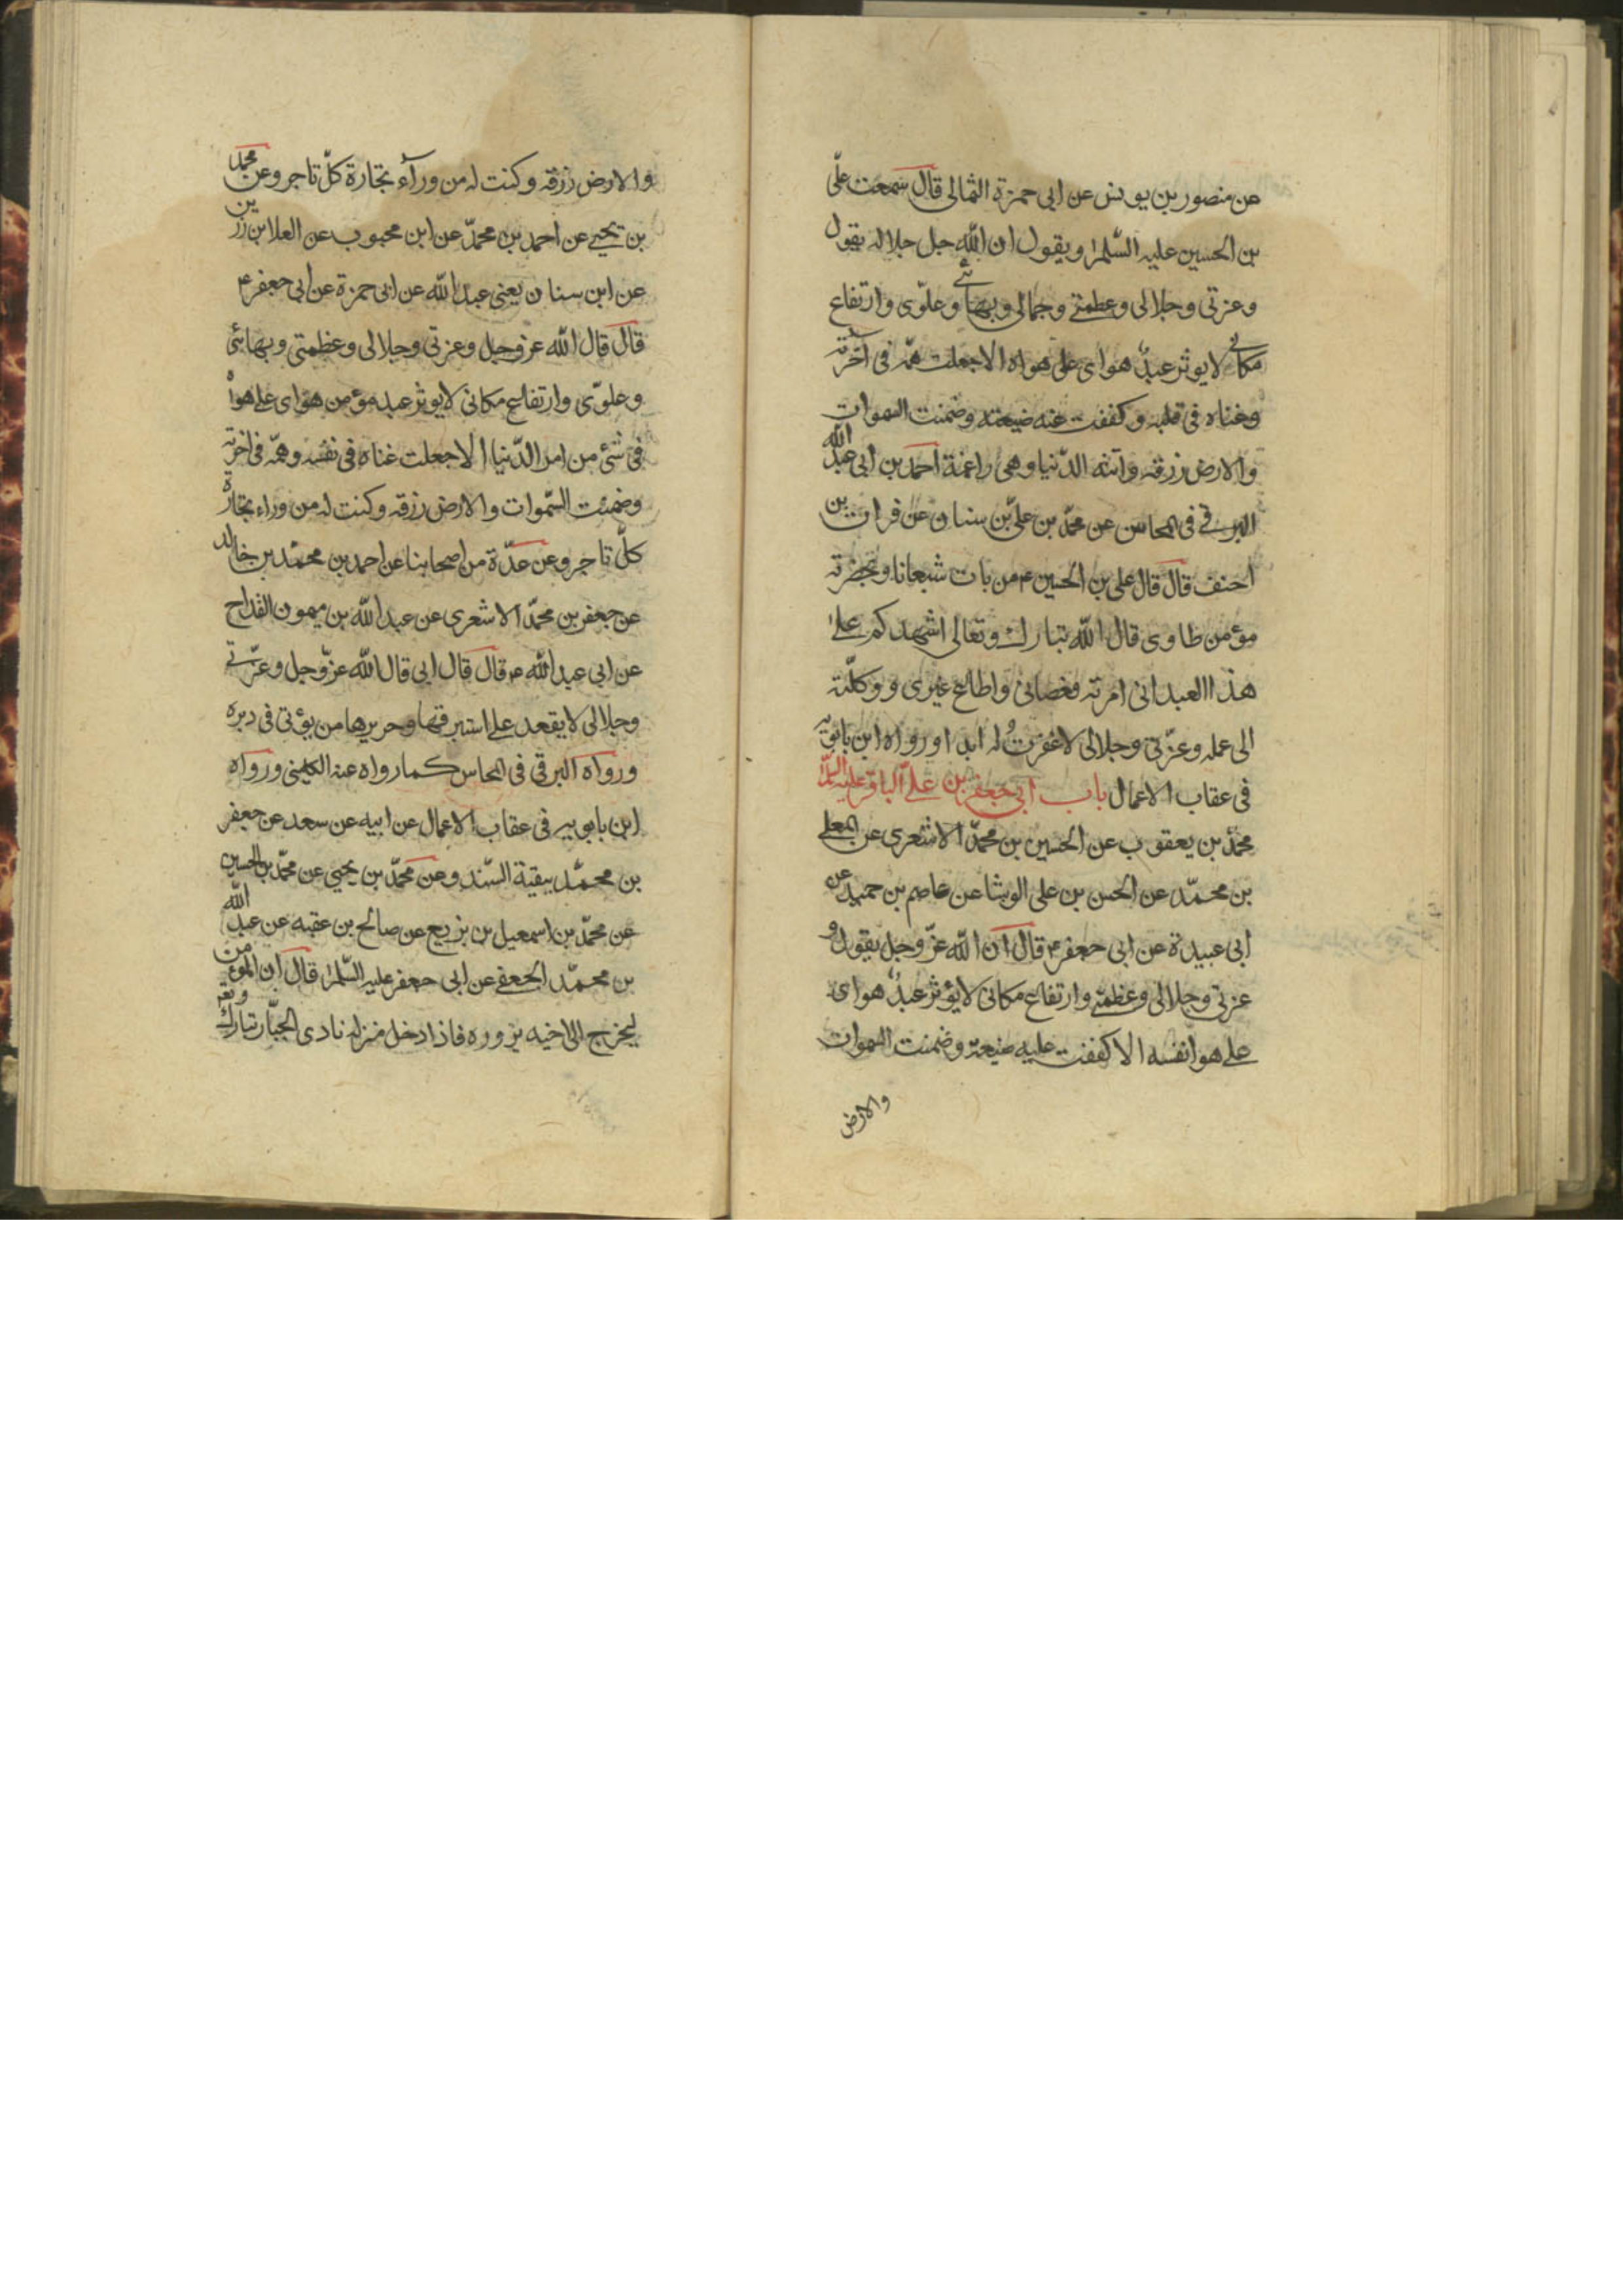 عن منصور بن يونس عن ابى حمزة الثمالى قال سمعت علّى
بن الحسين عليه السّلم ويقول ان اللّه جل جلاله يقول
وعزتى وجلالى وعظمتى وجمالى وبهائى وعلوّى وارتفاع
مكانى لا يوثر عبدٌ هواى على هواه الا جعلت همّه فى آخرته
وغناه فى قلبه وكففت عنه ضيعته وضمنت السموات
والارض رزقه وآتته الدّنيا وهى راغمة احمد بن ابى عبد اللّه
البرقى فى المحاسن عن محمّد بن علىّ بن سنان عن فرات بن
احنف قال قال على بن الحسين ع من بات شبعانا وبحضرته
مؤمن طاوى قال اللّه تبارك وتعالى اشهدكم على
هذا العبد انى امرته فعصانى واطاع غيرى ووكلّته
الى عمله وعزّتى وجلالى لا غفرتُ له ابدا ورواه ابن بابويه
فى عقاب الاعمال باب ابى جعفر بن علىّ الباقر عليه السّلم
محمّد بن يعقوب عن الحسين بن محمّد الاشعرى عن المعلى
بن محمّد عن الحسن بن على الوشا عن عاصم بن حميد عن
ابى عبيدة عن ابى جعفر ع قال ان اللّه عزّ وجل يقول و
عزتى وجلالى وعظمتى وارتفاع مكانى لا يؤثر عبدٌ هواى
على هوا نفسه الا كففت عليه ضيعته وضمنت السموات
والارض
والارض رزقه وكنت له من ورآء تجارة كلّ تاجر وعن محمد
بن يحيى عن احمد بن محمّد عن ابن محبوب عن العلا بن رزين
عن ابن سنان يعنى عبد اللّه عن ابى حمزة عن ابى جعفر ع
قال قال اللّه عز وجل وعزتى وجلالى وعظمتى وبهائى
وعلوّى وارتفاع مكانى لا يوثر عبد مؤمن هواى على هواه
فى شئ من امر الدّنيا الا جعلت غناه فى نفسه وهمّه فى اخرته
وضمنت السّموات والارض رزقه وكنت له من وراء تجارة
كلّ تاجر وعن عدّة من اصحابنا عن احمد بن محمّد بن خالد
عن جعفر بن محمّد الاشعرى عن عبد اللّه بن ميمون القداح
عن ابى عبد اللّه ع قال قال ابى قال اللّه عزّ وجل وعزّتى
وجلالى لا يقعد على استبرقها وحريرها من يؤتى فى دبره
ورواه البرقى فى المحاسن كما رواه عنه الكلينى ورواه
ابن بابويه فى عقاب الاعمال عن ابيه عن سعد عن جعفر
بن محمّد ببقية السّند وعن محمّد بن يحيى عن محمّد بن الحسين
عن محمّد بن اسمعيل بن بزيع عن صالح بن عقبه عن عبد اللّه
بن محمّد الجعفى عن ابى جعفر عليه السّلم قال ان المؤمن
ليخرج الى اخيه يزوره فاذا دخل منزله نادى الجبّار تبارك وتعه